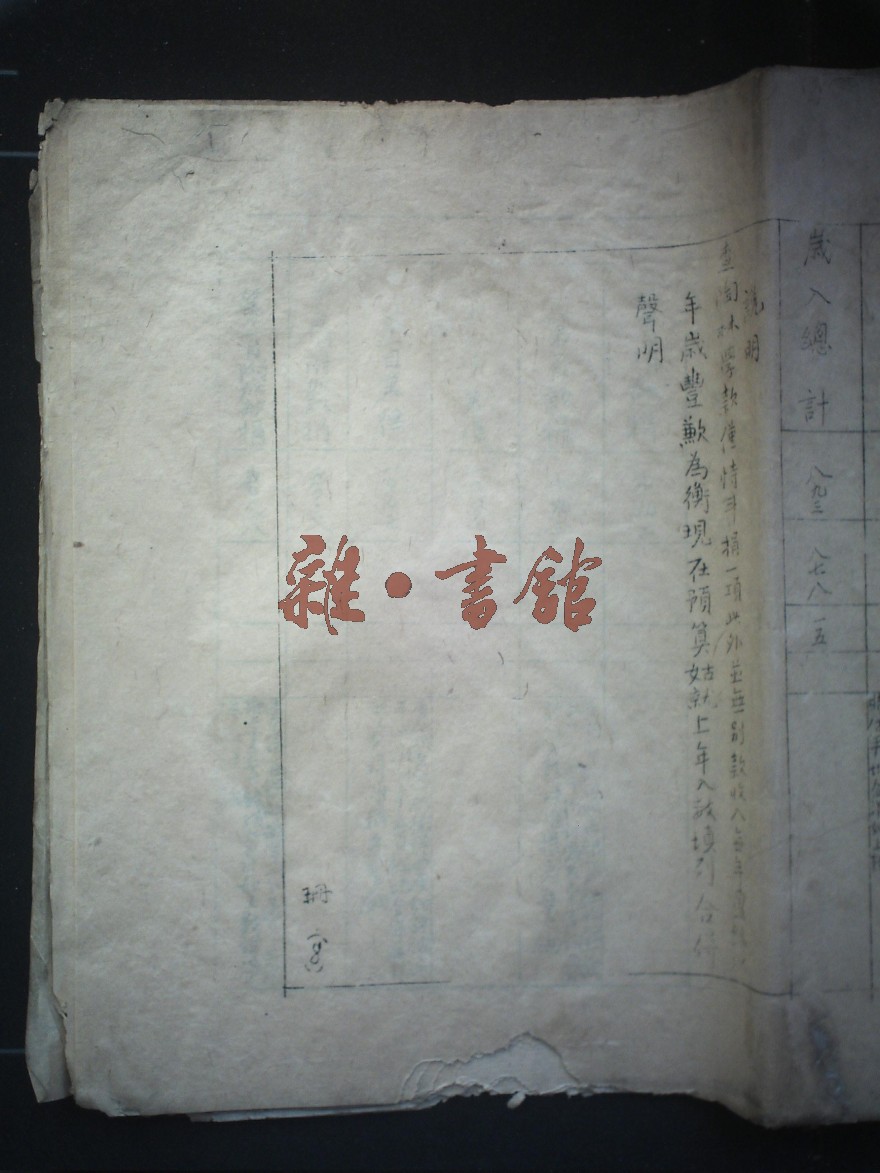 歲入總計 八九三 八七八 一五
說明
查陶林學款僅恃斗捐一項此外並無別款收入每年
年歲豐歉為衡現在預算姑就上年入款填列合併
聲明
冊 (8)
雜·書館